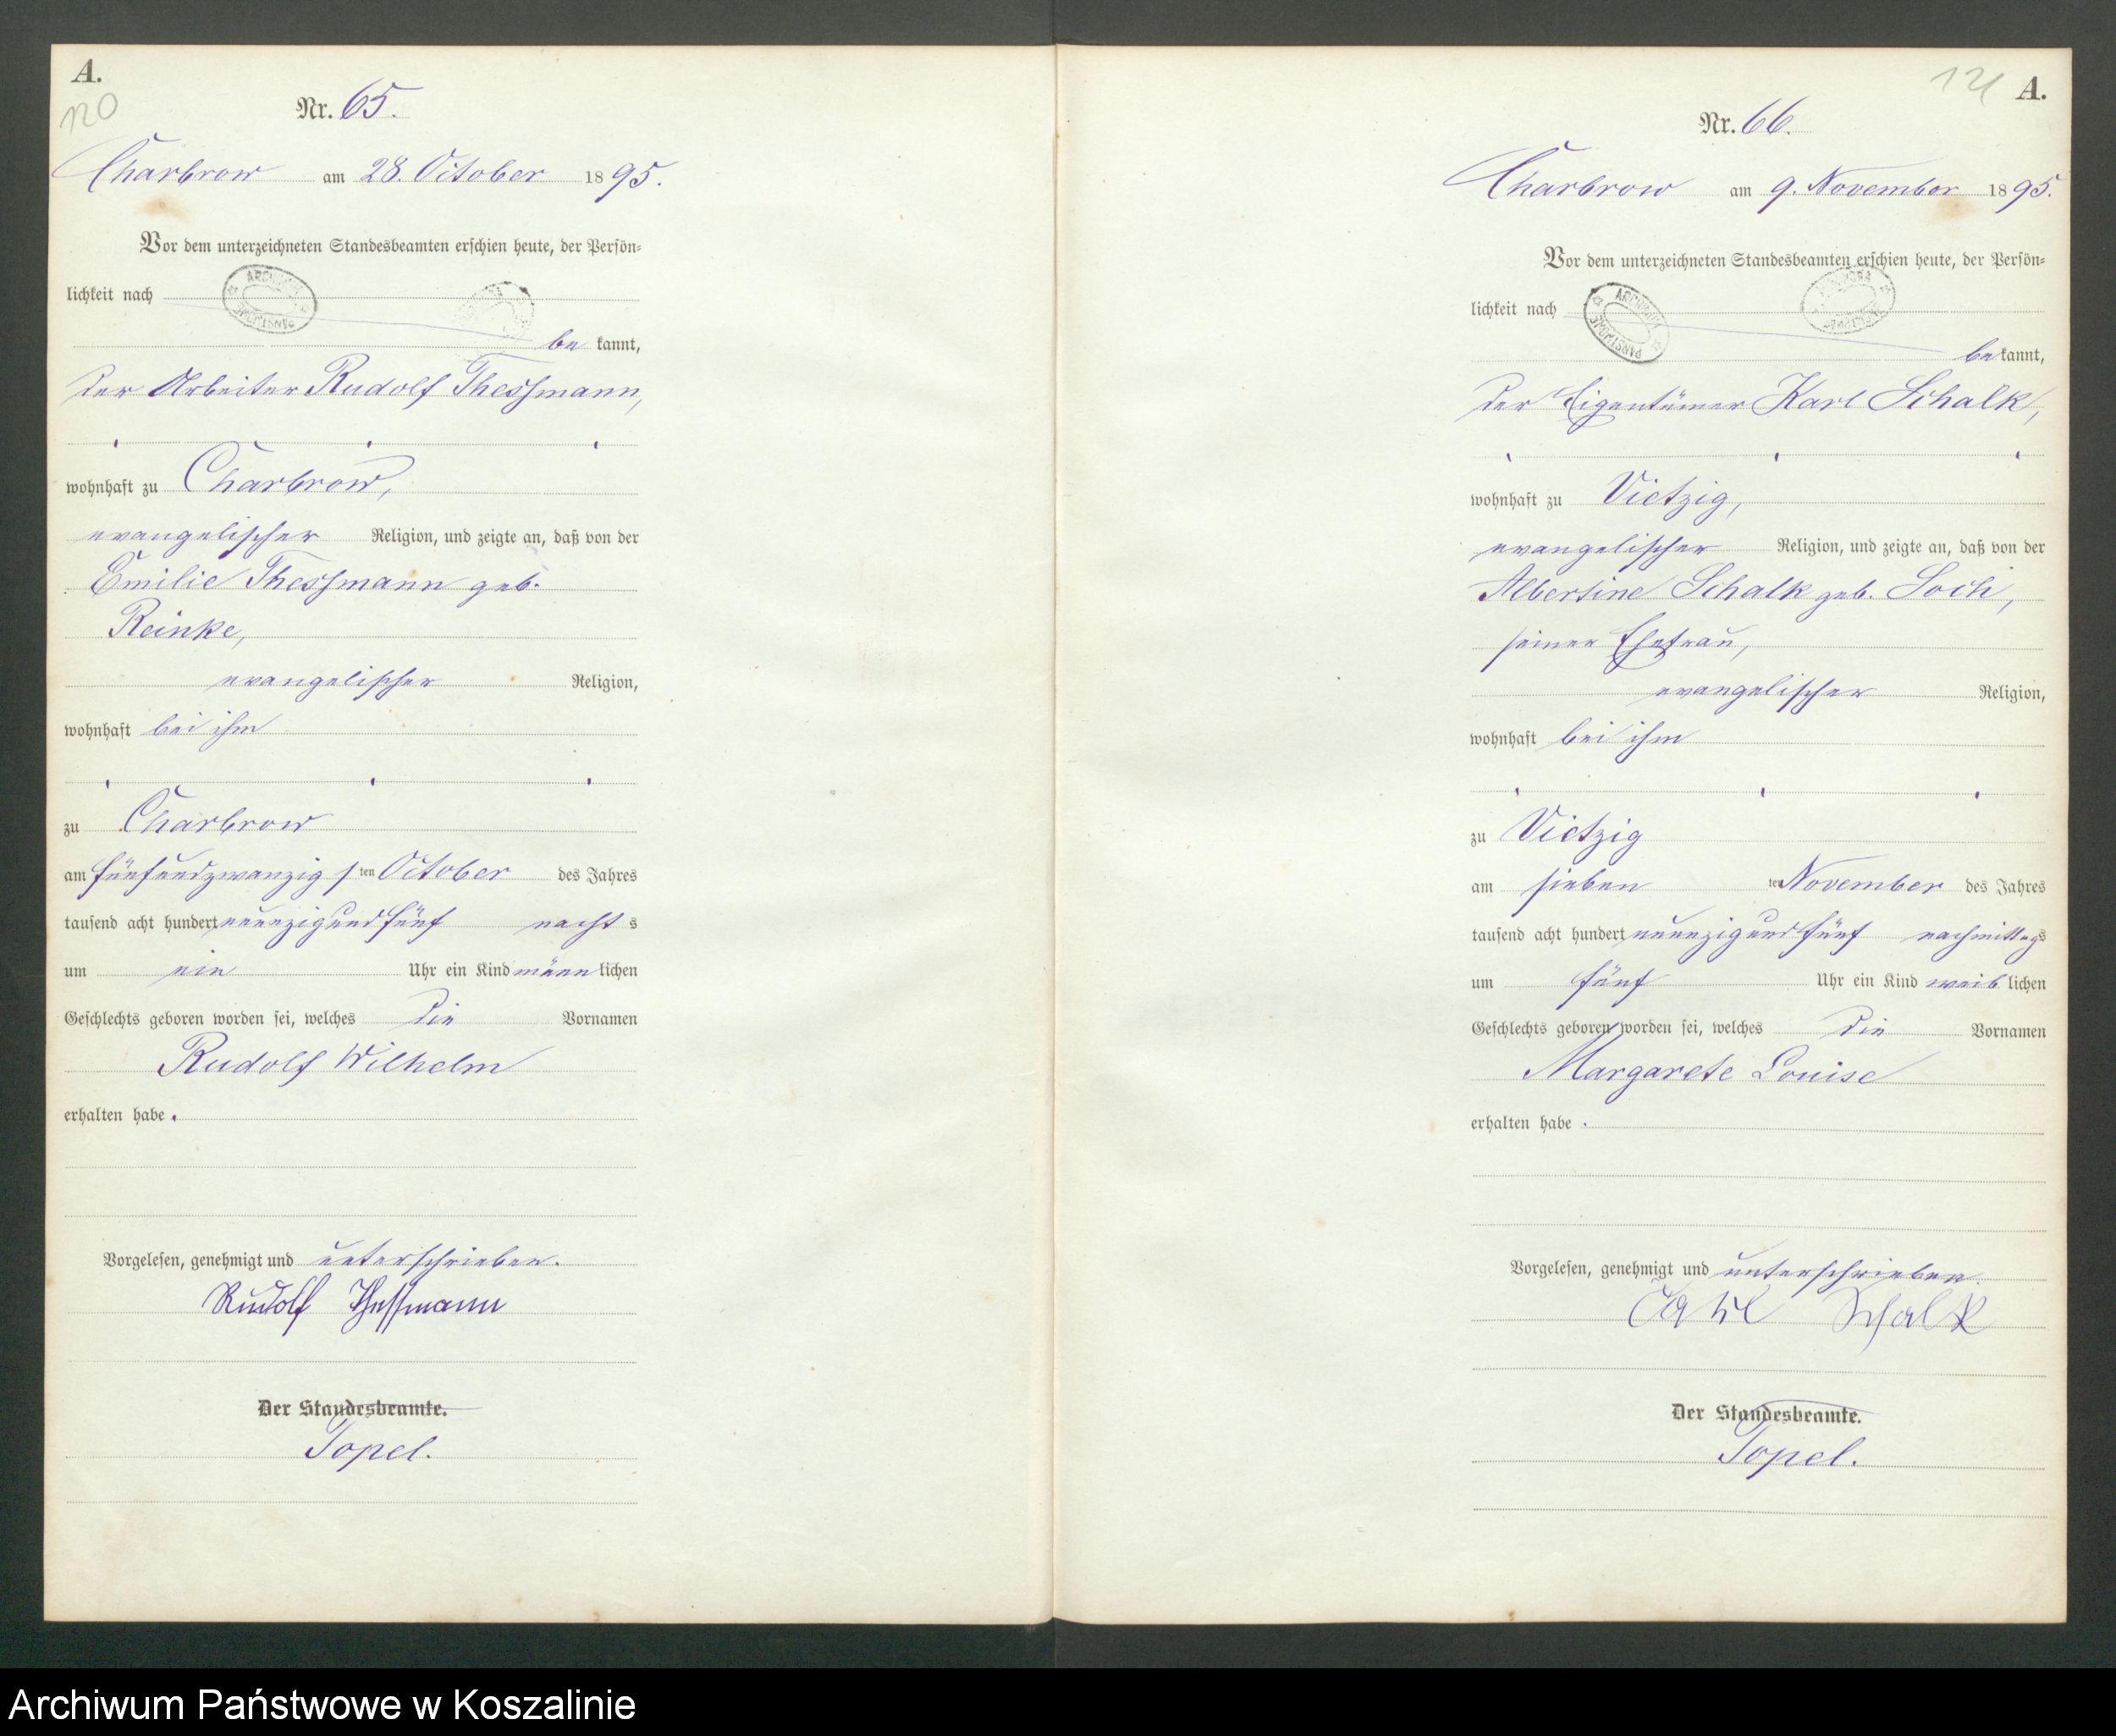 A.
120
Nr. 65.
Charbrow am 28. October 1895.
Vor dem unterzeichneten Standesbeamten erschien heute, der Persön-
lichkeit nach
be kannt,
der Arbeiter Rudolf Thessmann,
wohnhaft zu Charbrow,
evangelischer Religion, und zeigte an, daß von der
Emilie Thessmann geb.
Reinke,
evangelischer Religion,
wohnhaft bei ihm
zu Charbrow
am fünfundzwanzigsten October des Jahres
tausend acht hundert neunzig und fünf nachts
um ein Uhr ein Kind männlichen
Geschlechts geboren worden sei, welches die Vornamen
Rudolf Wilhelm
erhalten habe.
Vorgelesen, genehmigt und unterschrieben.
Rudolf Thessmann
Der Standesbeamte.
Topel.
121 A.
Nr. 66.
Charbrow am 9. November 1895.
Vor dem unterzeichneten Standesbeamten erschien heute, der Persön-
lichkeit nach
bekannt,
der Eigentümer Karl Schalk,
wohnhaft zu Vietzig,
evangelischer Religion, und zeigte an, daß von der
Albertine Schalk geb. Soch,
seiner Ehefrau,
evangelischer Religion,
wohnhaft bei ihm
zu Vietzig
am sieben ten November des Jahres
tausend acht hundert neunzig und fünf nachmittags
um fünf Uhr ein Kind weiblichen
Geschlechts geboren worden sei, welches die Vornamen
Margarete Louise
erhalten habe.
Vorgelesen, genehmigt und unterschrieben.
Carl Schalk
Der Standesbeamte.
Topel.
Archiwum Państwowe w Koszalinie